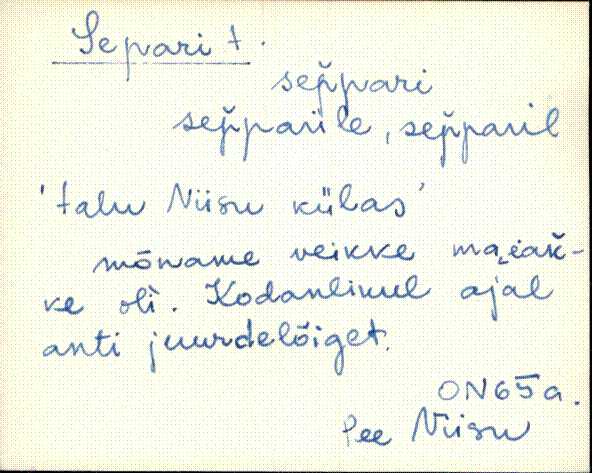 Separi t.
sep̌pari
sep̌parile, sep̌paril
'talu Niisu külas'
mõname veikke
ke olì. Kodanlikul ajal
anti juurdelõiget.
ON65a.
Pee Niisu